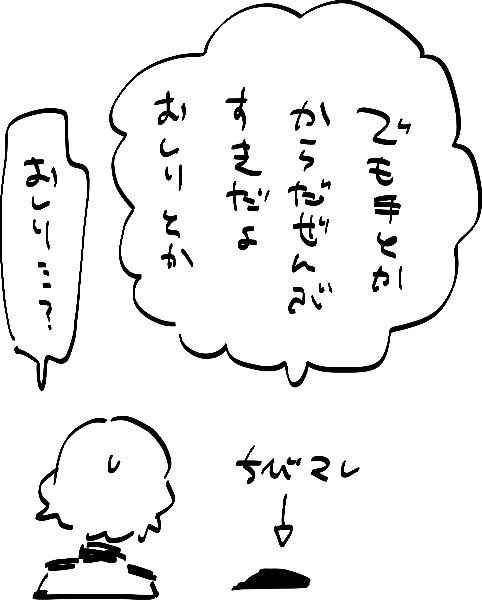 でも手とか
からだぜんぶ
すきだよ
おしりとか
おしり…?
ちびマレ